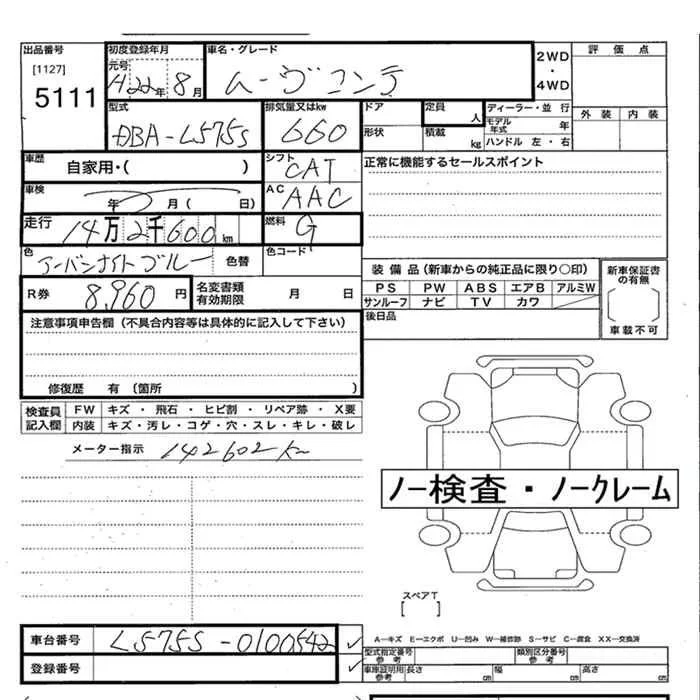 出品番号 初度登録年月 車名・グレード 2WD・4WD 評価点
[1127] 元号 H22年 8月 ムーヴコンテ
5111
型式 排気量又はkw ドア 定員 人 ディーラー・並行 外装 内装
DBA-L575S 660 形状 積載 kg モデル年式 年 ハンドル 左・右
車歴 自家用・( ) シフト CAT 正常に機能するセールスポイント
車検 年 月( 日) AC AAC
走行 14万2千600km 燃料 G
色 アーバンナイトブルー 色替 色コード
装備品(新車からの純正品に限り○印) 新車保証書の有無
R券 8,960円 名変書類有効期限 月 日 PS PW ABS エアB アルミW
サンルーフ ナビ TV カワ
車載不可
注意事項申告欄(不具合内容等は具体的に記入して下さい) 後日品
修復歴 有 (箇所 )
検査員記入欄 FW キズ・飛石・ヒビ割・リペア跡・X要
内装 キズ・汚レ・コゲ・穴・スレ・キレ・破レ
メーター指示 142602km
ノー検査・ノークレーム
スペアT
[ ]
車台番号 L575S-0100542 A−キズ E−エクボ U−凹み W−補修跡 S−サビ C−腐食 XX−交換済
型式指定番号 参考 類別区分番号 参考
登録番号 車庫証明用参考 長さ cm 幅 cm 高さ cm